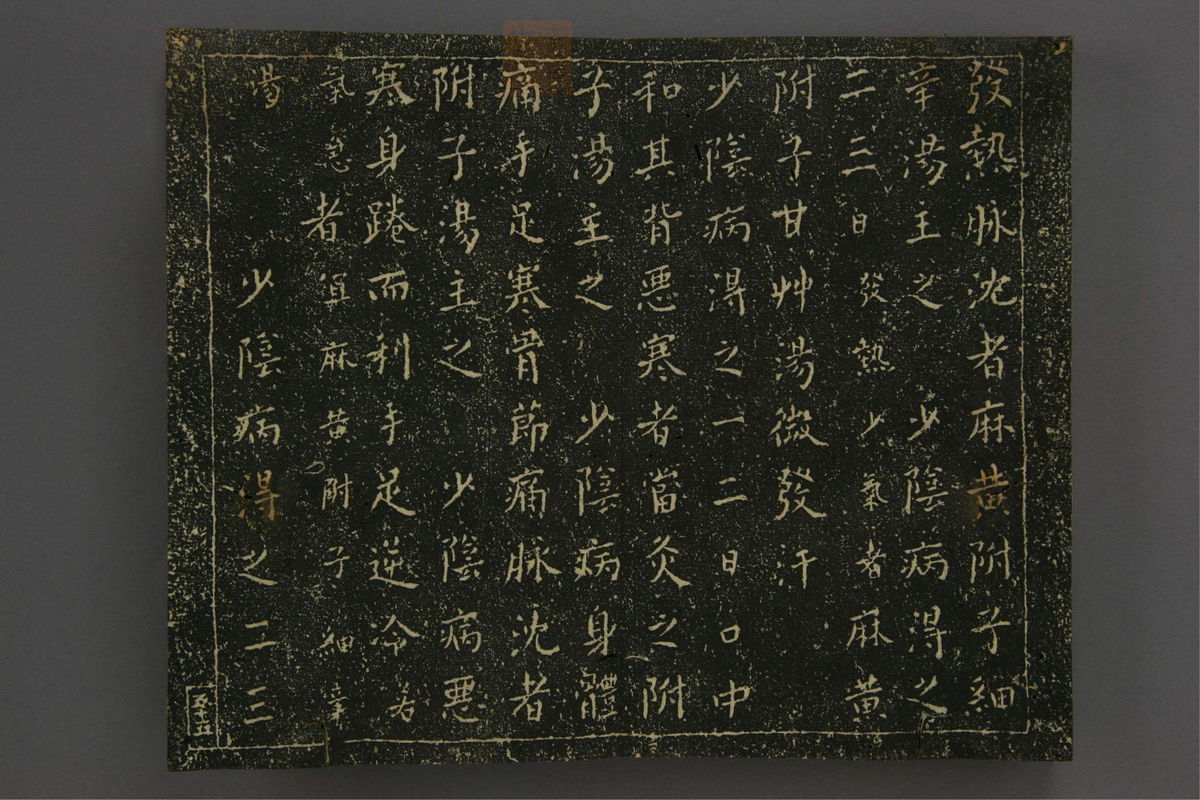 發熱脉沈者麻黄附子細
辛湯主之 少陰病得之
二三日發熱少氣者麻黄
附子甘艸湯微發汗
少陰病得之一二日口中
和其背悪寒者當灸之附
子湯主之 少陰病身體
痛手足寒骨節痛脉沈者
附子湯主之 少陰病悪
寒身踡而利手足逆冷若
氣急者宜麻黄附子細辛
湯 少陰病得之二三
五十五